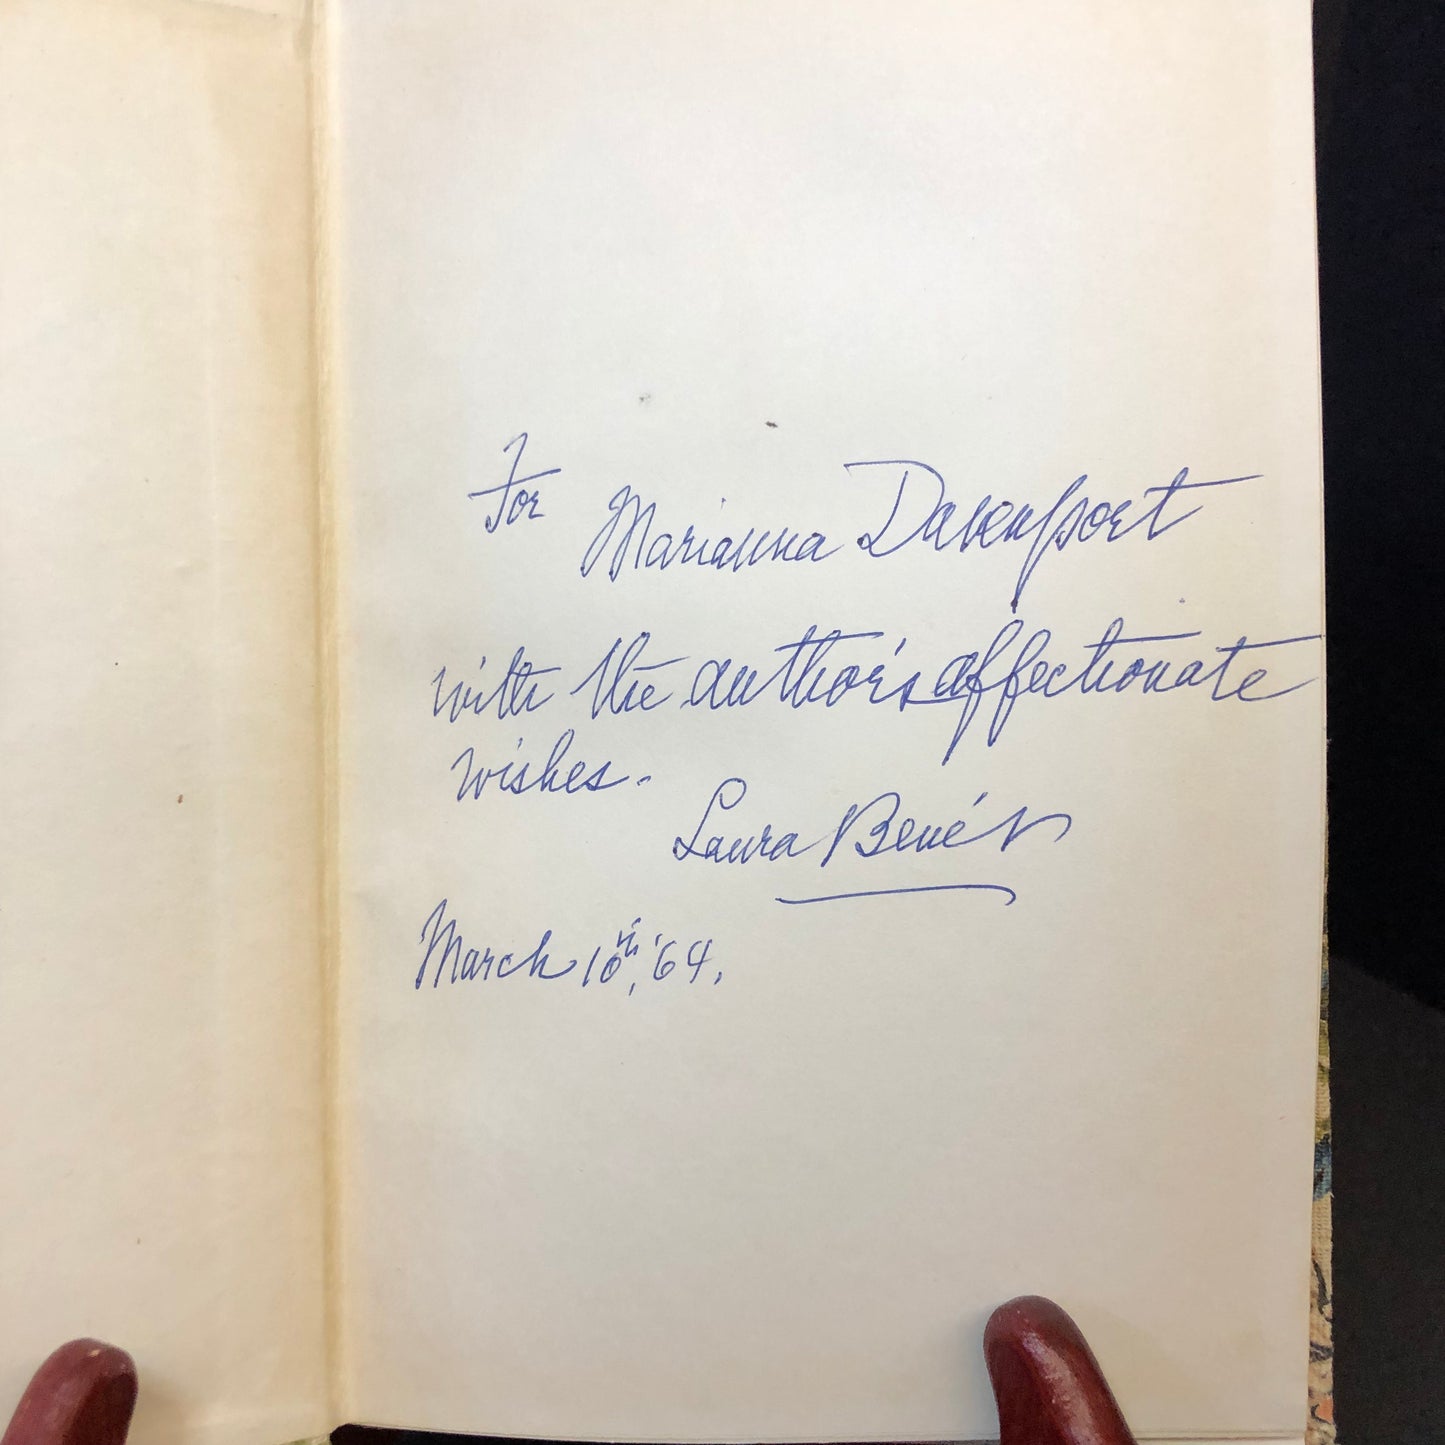 For Marianna Davenport
with the author's affectionate
wishes.
Laura Benét
March 10th, '64.